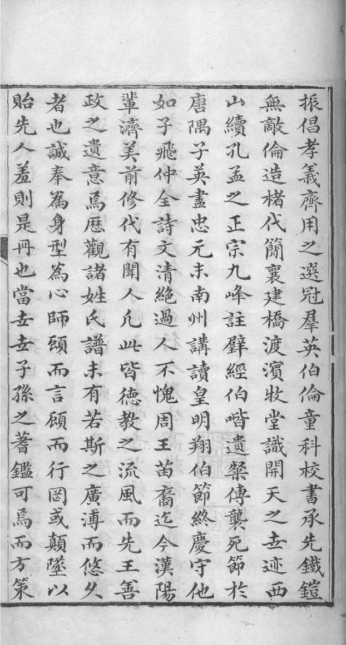 振倡孝義齊用之選冠羣英伯倫童科校書承先鐵鎧
無敵倫造楮代簡襄建橋渡濱牧堂識開天之世迹西
山續孔孟之正宗九峰註壁經伯喈遺槃傳龔死節於
唐隅子英盡忠元末南州講讀皇明翔伯節終慶守他
如子飛仲全詩文清絶過人不愧周王苗裔迄今漢陽
輩濟美前修代有聞人凢此皆德教之流風而先王善
政之遺意焉歷觀諸姓氏譜未有若斯之廣溥而悠久
者也誠奉為身型為心師顧而言顧而行罔或顛墜以
貽先人羞則是冊也當世世子孫之蓍鑑可焉而方策